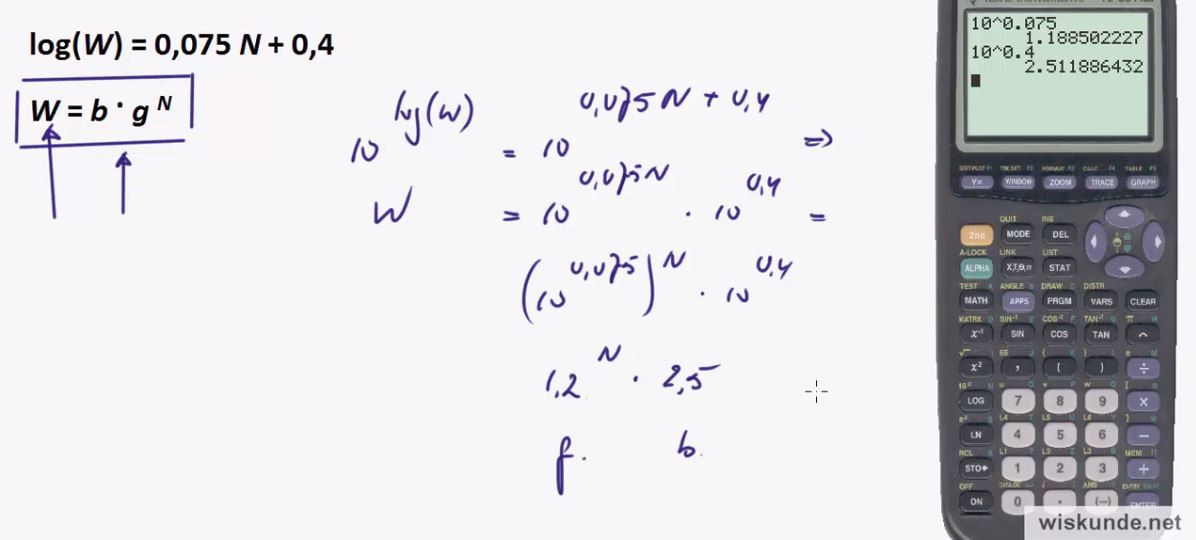 log(W) = 0,075 N + 0,4
W = b · g^N
10^log(W) = 10^0,075N + 0,4 =>
W = 10^0,075N · 10^0,4 =
(10^0,075)^N · 10^0,4
1,2^N · 2,5
g. b.
10^0.075
1.188502227
10^0.4
2.511886432
STAT PLOT F1 TBL SET F2 FORMAT F3 CALC F4 TABLE F5
Y= WINDOW ZOOM TRACE GRAPH
QUIT INS
2nd MODE DEL
A-LOCK LINK LIST
ALPHA X,T,θ,n STAT
TEST A ANGLE B DRAW C DISTR
MATH APPS PRGM VARS CLEAR
MATRX D SIN⁻¹ E COS⁻¹ F TAN⁻¹ G π H
x⁻¹ SIN COS TAN ^
√ EE J { K } L e M
x² , ( ) ÷
10ˣ N u O v P w Q [ R
LOG 7 8 9 X
eˣ S L4 T L5 U L6 V ] W
LN 4 5 6 −
RCL X L1 Y L2 Z L3 θ MEM "
STO▸ 1 2 3 +
OFF CATALOG i ANS ? ENTRY SOLVE
ON 0 . (−) ENTER
wiskunde.net